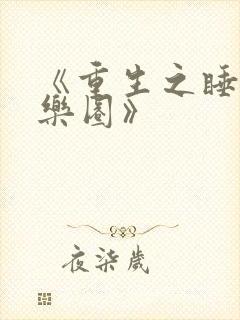 《重生之睡
樂園》
夜柒歲